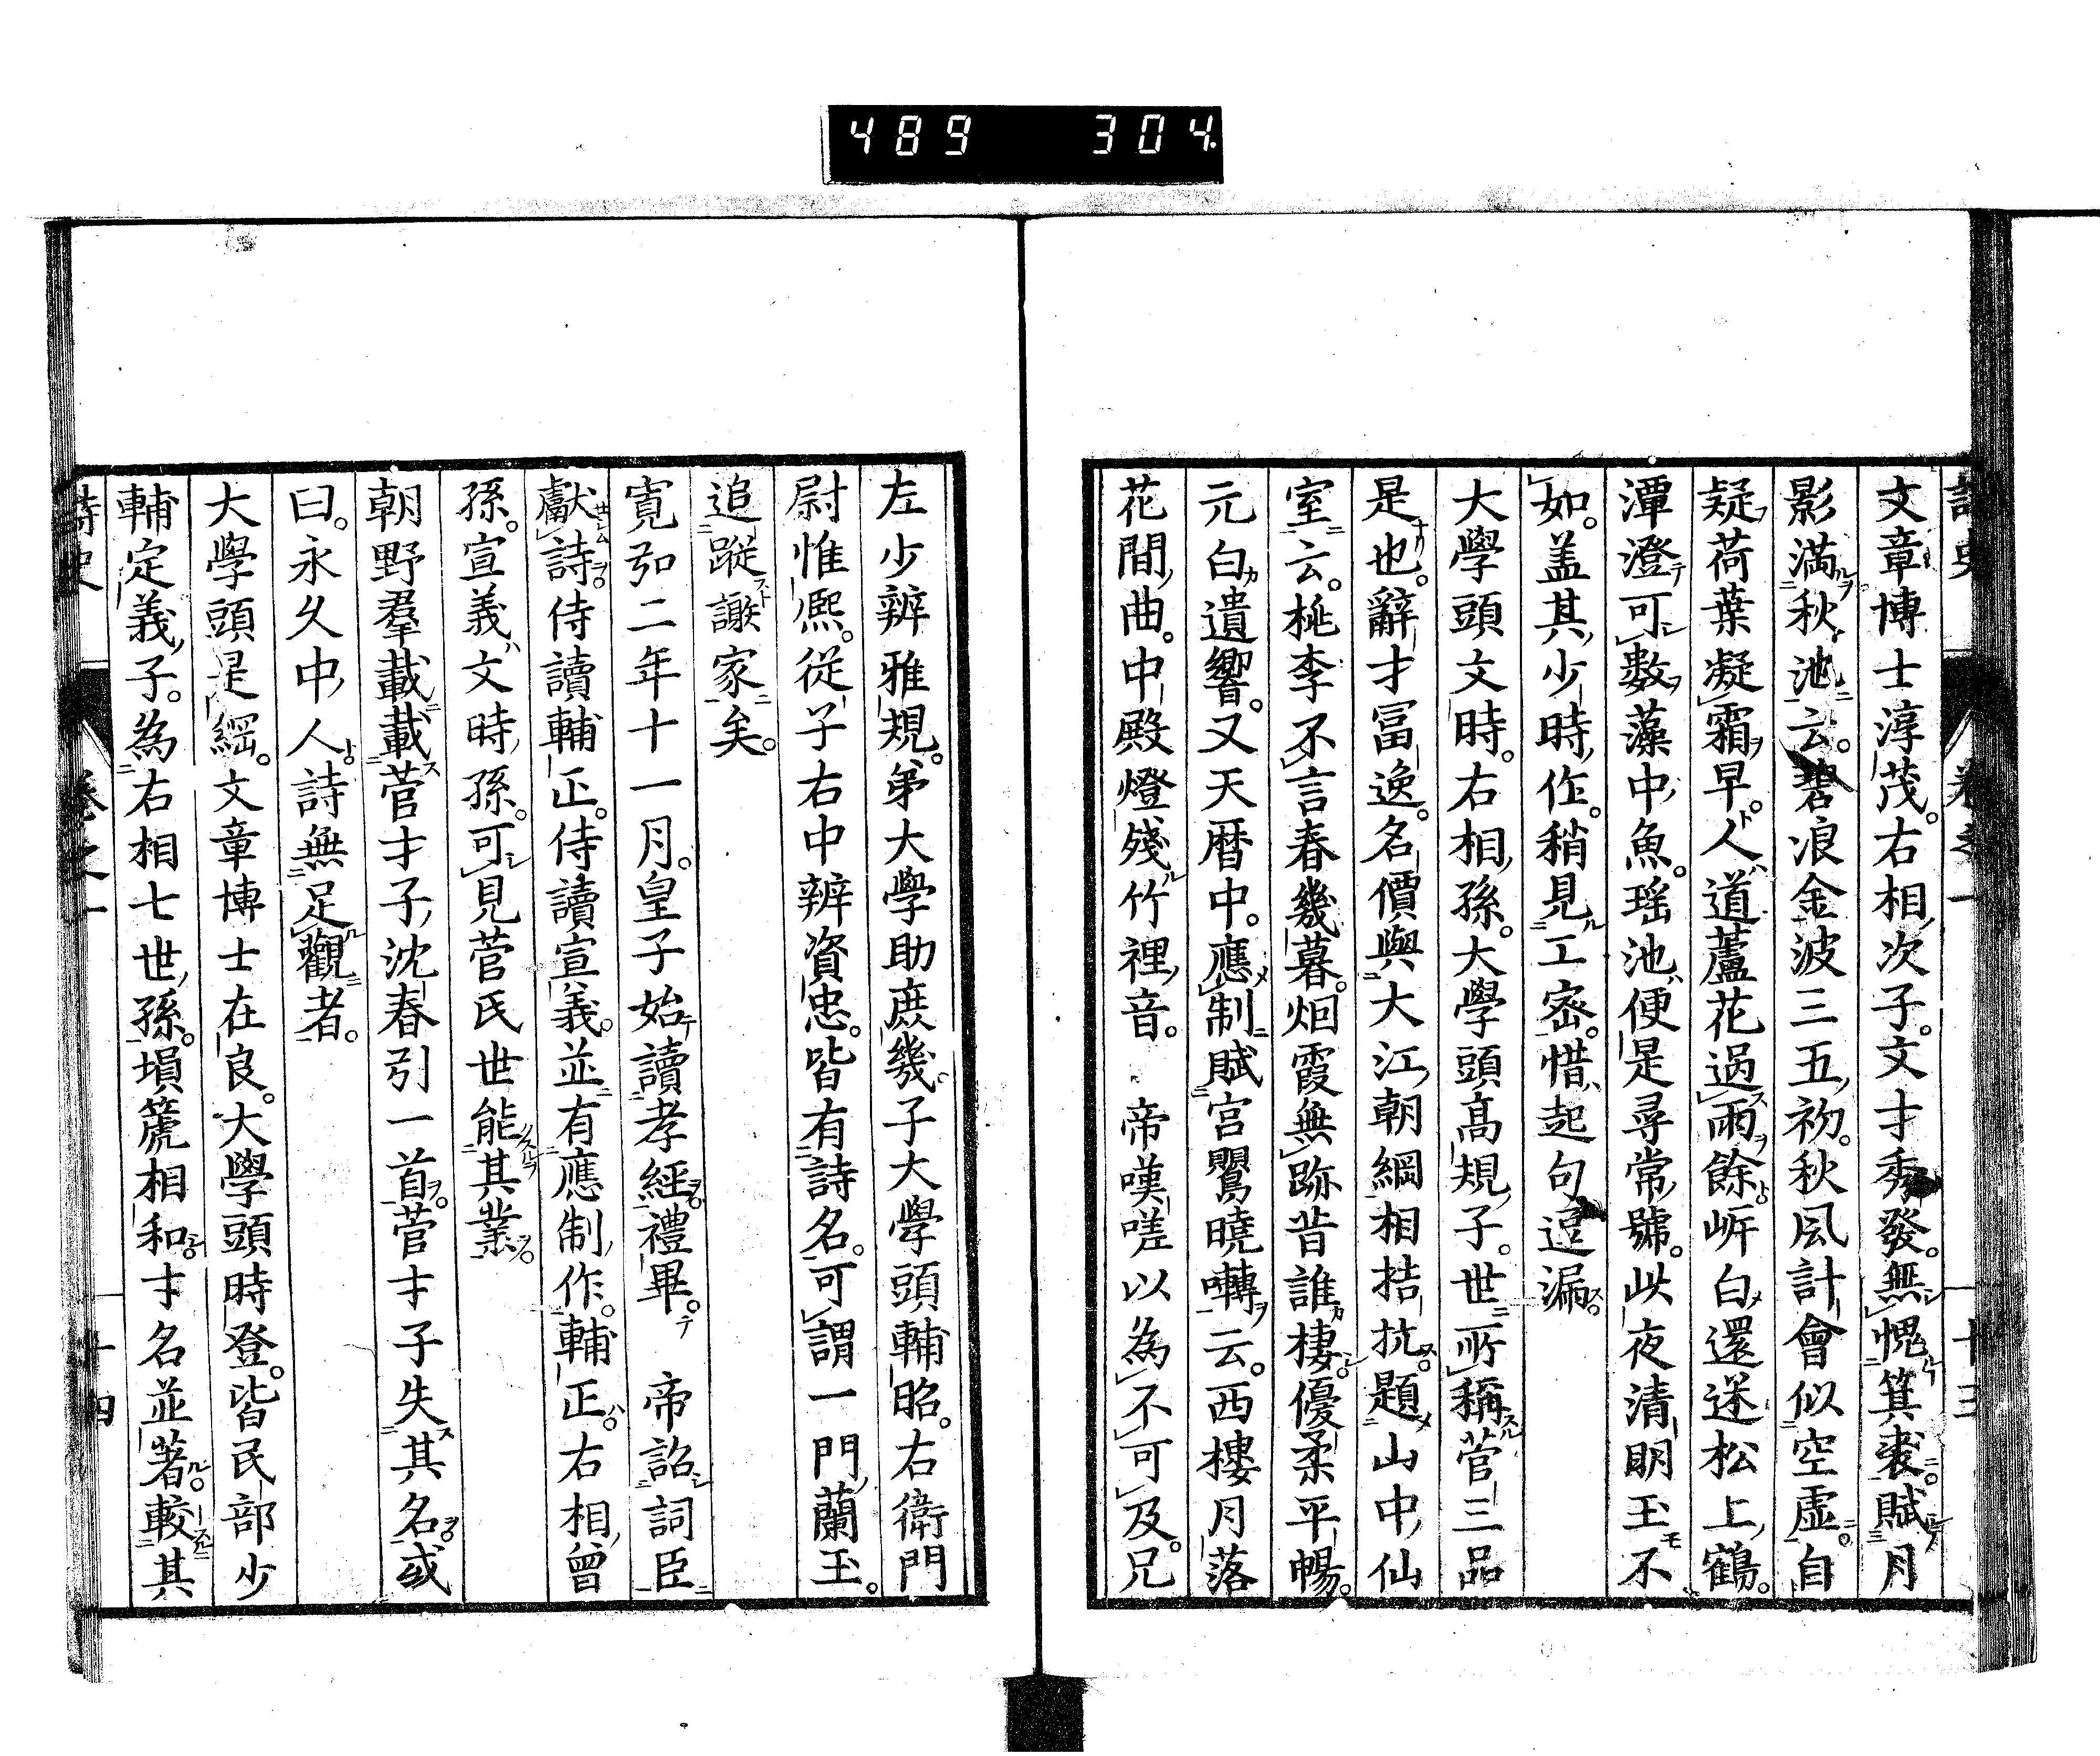 489 304
文章博士淳茂。右相次子。文才秀發。無愧箕裘。賦月
影滿秋池云。碧浪金波三五初。秋風計會似空虛。自
疑荷葉凝霜早。人道蘆花過雨餘。岸白還迷松上鶴。
潭澄可數藻中魚。瑶池便是尋常號。此夜清明玉不
如。盖其少時作。稍見工密。惜起句逗漏。
大學頭文時。右相孫。大學頭高規子。世所稱菅三品
是也。辭才冨逸。名價與大江朝綱相拮抗。題山中仙
室云。桃李不言春幾暮。烟霞無跡昔誰棲。優柔平暢。
元白遺響。又天暦中。應制賦宮鶯曉囀云。西樓月落
花間曲。中殿燈殘竹裡音。 帝嘆嗟以為不可及。兄
左少辨雅規。弟大學助庶幾子大學頭輔昭。右衛門
尉惟熈。從子右中辨資忠。皆有詩名。可謂一門蘭玉。
追蹤謝家矣。
寛弘二年十一月。皇子始讀孝經。禮畢。 帝詔詞臣
獻詩。侍讀輔正。侍讀宣義。並有應制作。輔正。右相曾
孫。宣義文時孫。可見菅氏世能其業。
朝野羣載載菅才子沈春引一首。菅才子失其名。或
曰。永久中人。詩無足觀者。
大學頭是綱。文章博士在良。大學頭時登。皆民部少
輔定義子。為右相七世孫。塤箎相和。才名並著。較其
詩史 卷之一 十四